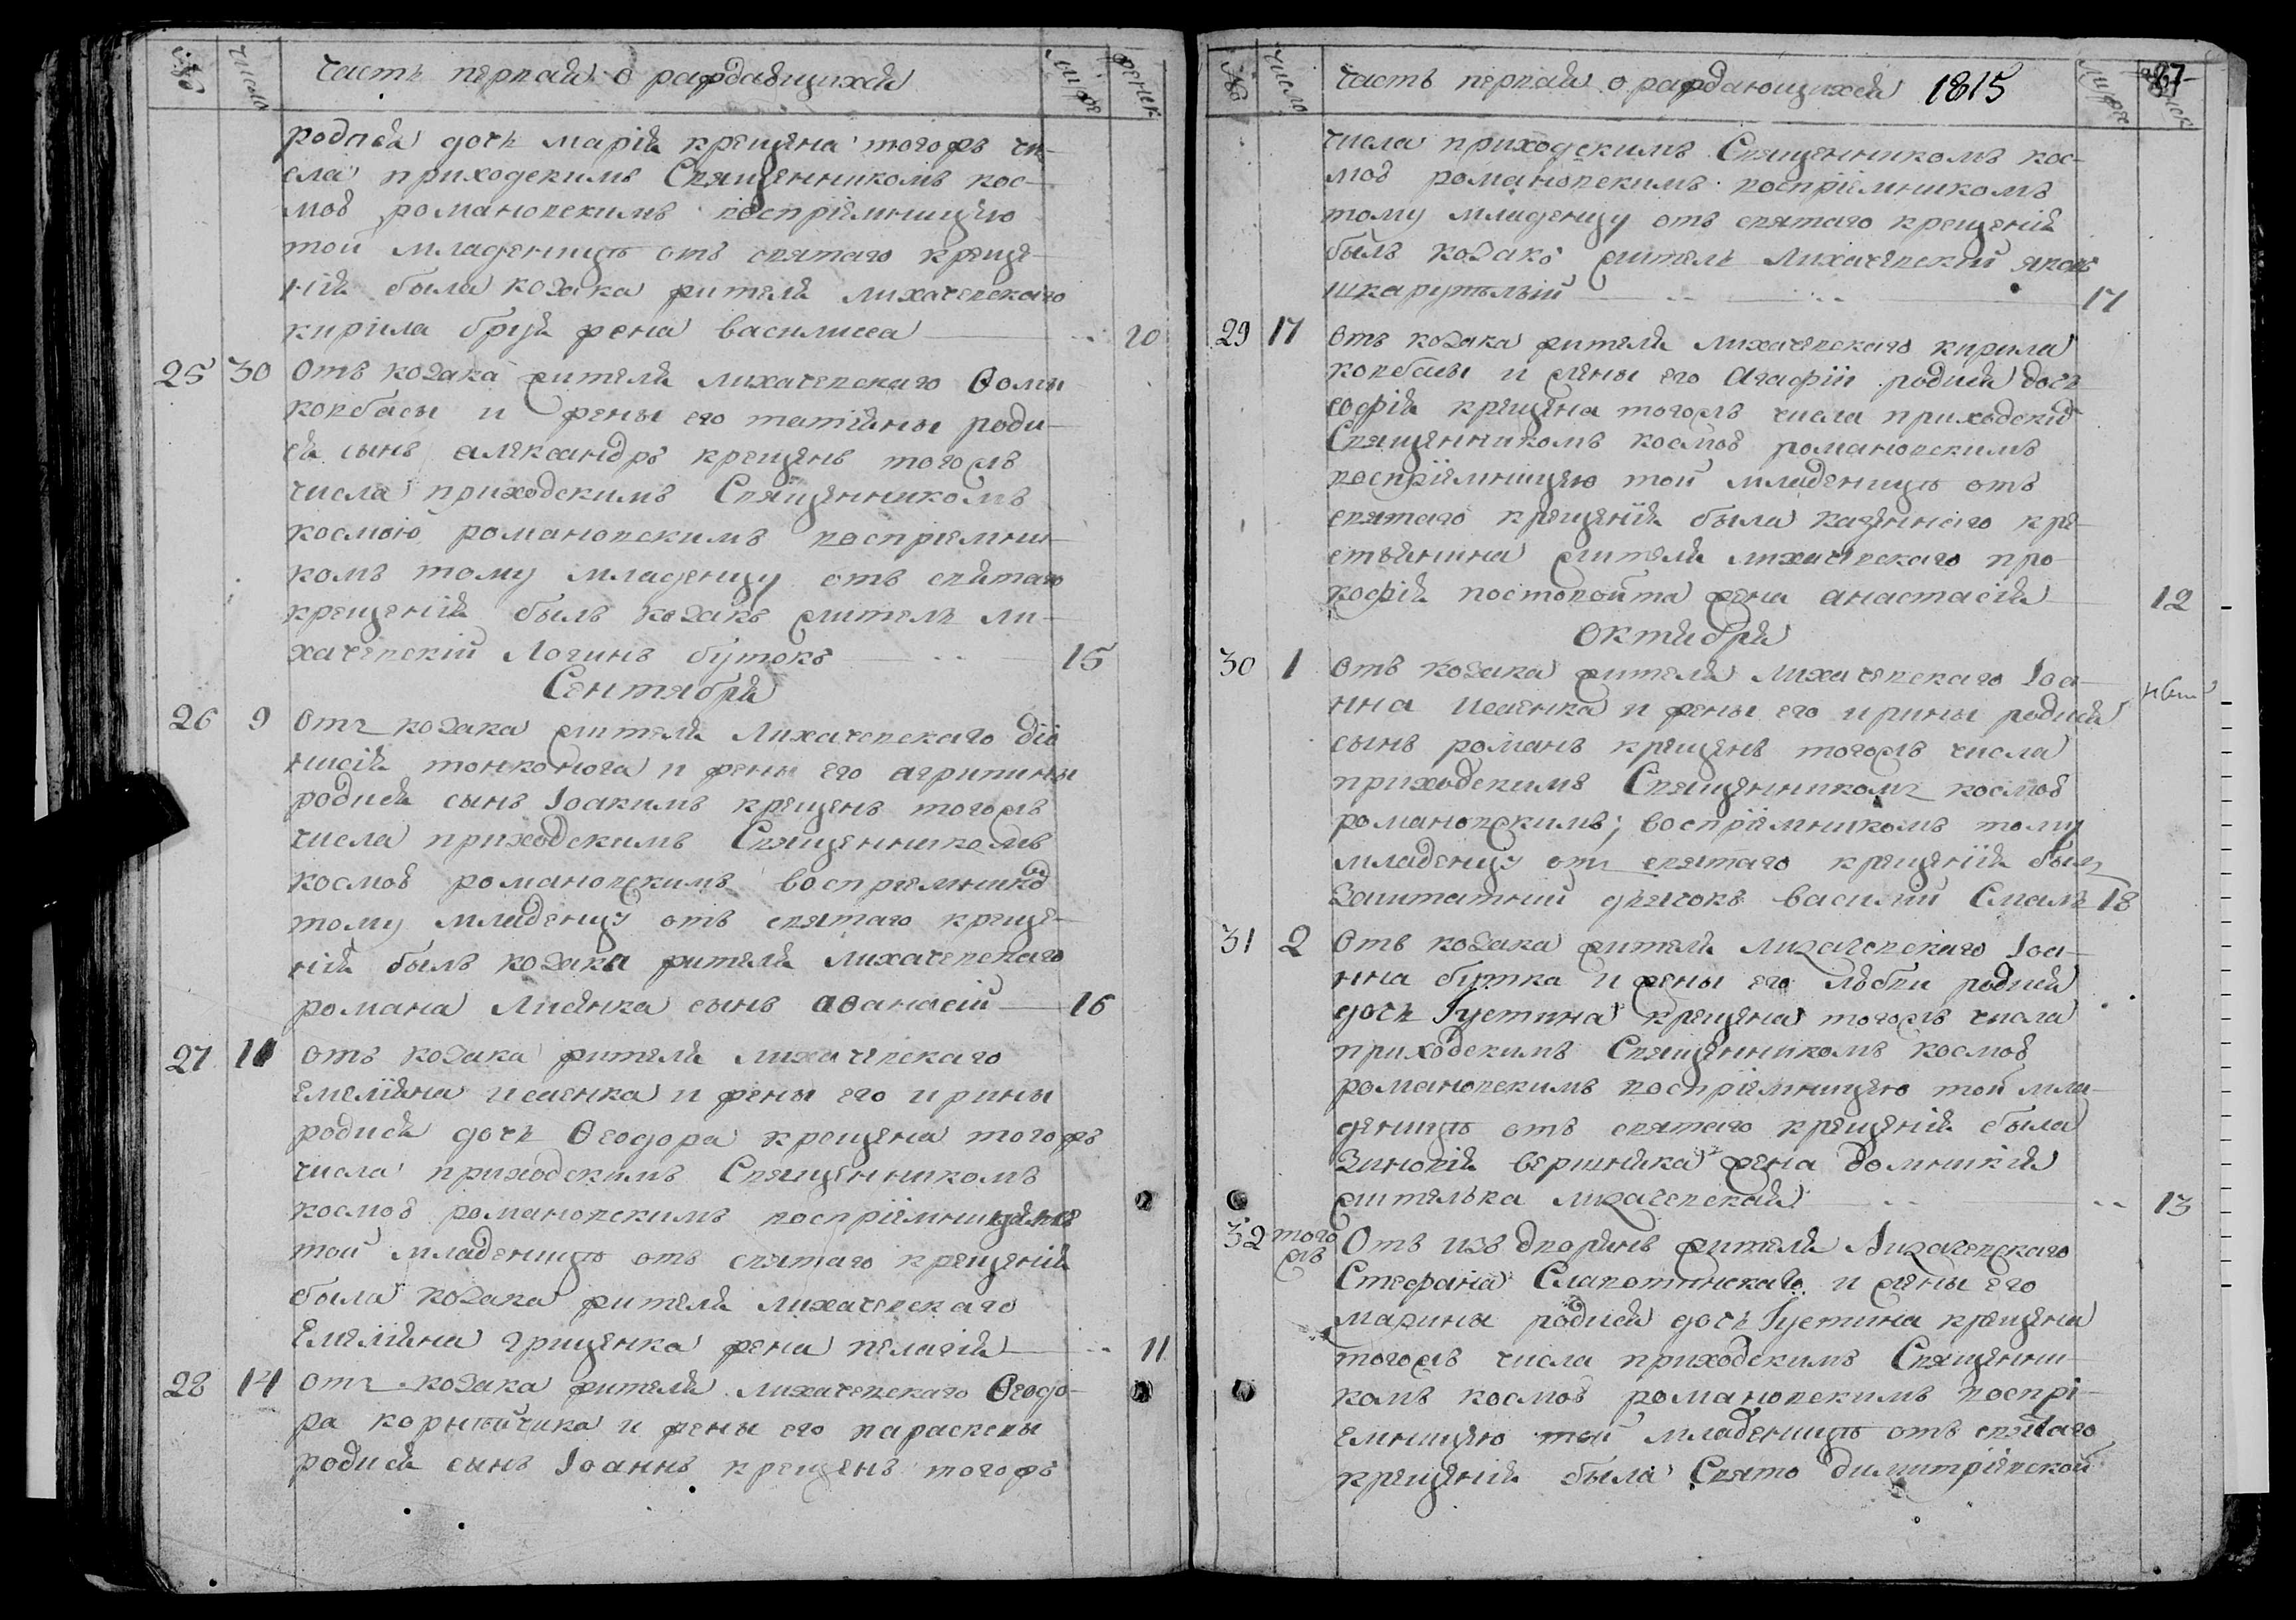 № число часть первая о раждающихся муже женск
родися дочь марія крещена тогожъ чи-
сла приходскимъ Священникомъ кос-
мою романовскимъ воспріемницею
той младеницѣ отъ святаго креще-
нія была козака жителя лихачевскаго
кирила бруя жена василисса 20
25 30 Отъ козака жителя лихачевскаго Ѳомы
ковбасы и жены его татіяны роди-
ся сынъ александръ крещенъ тогожъ
числа приходскимъ Священникомъ
космою романовскимъ воспріемни-
комъ тому младенцу отъ святаго
крещенія былъ козакъ житель ли-
хачевскій Логинъ бутокъ 15
Сентября
26 9 Отъ козака жителя Лихачевскаго діо
нисія тонконога и жены его агрипины
родися сынъ Іоакимъ крещенъ тогожъ
числа приходскимъ Священникомъ
космою романовскимъ воспріемнико
тому младенцу отъ святаго креще-
нія былъ козака жителя лихачевскаго
романа Лисянка сынъ аѳанасій 16
27 11 отъ козака жителя лихачевскаго
Емеліяна исаенка и жены его ирины
родися дочь Ѳеодора крещена тогожъ
числа приходскимъ Священникомъ
космою романовскимъ воспріемницею
той младеницѣ отъ святаго крещенія
была козака жителя лихачевскаго
Емеліяна грищенка жена пелагія 11
28 14 отъ козака жителя лихачевскаго Ѳеодо-
ра корнѣйчика и жены его параскевы
родися сынъ Іоаннъ крещенъ тогожъ
№ число часть первая о раждающихся 1815 муже 87
числа приходскимъ Священникомъ кос-
мою романовскимъ воспріемникомъ
тому младенцу отъ святаго крещенія
былъ козакъ житель Лихачевскій яковъ
шкарупѣлый 17
29 17 Отъ козака жителя лихачевскаго кирила
ковбасы и жены его Агафіи родися дочь
софія крещена тогожъ числа приходски
Священникомъ космою романовскимъ
воспріемницею той младеницѣ отъ
святаго крещенія была казеннаго кре-
стьянина жителя лихачевскаго про-
кофія постовойта жена анастасія 12
Октября
30 1 Отъ козака жителя лихачевскаго Іоа-
нна исаенка и жены его ирины родися
сынъ романъ крещенъ тогожъ числа
приходскимъ Священникомъ космою
романовскимъ; воспріемникомъ тому
младенцу отъ святаго крещенія былъ
Заштатний дьячокъ василій Смалъ 18
31 2 Отъ козака жителя лихачевскаго Іоа-
нна бутка и жены его любви родися
дочь Іустина крещена тогожъ числа
приходскимъ Священникомъ космою
романовскимъ воспріемницею той мла-
деницѣ отъ святаго крещенія была
Зиновія вершняка жена домникія
жителька лихачевская 13
32 того жъ Отъ изъ дворянъ жителя Лихачевскаго
Стефана Слапотинскаго и жены его
марины родися дочь Іустина крещена
тогожъ числа приходскимъ Священни-
комъ космою романовскимъ воспрі-
емницею той младеницѣ отъ святаго
крещенія была Свято димитріевской